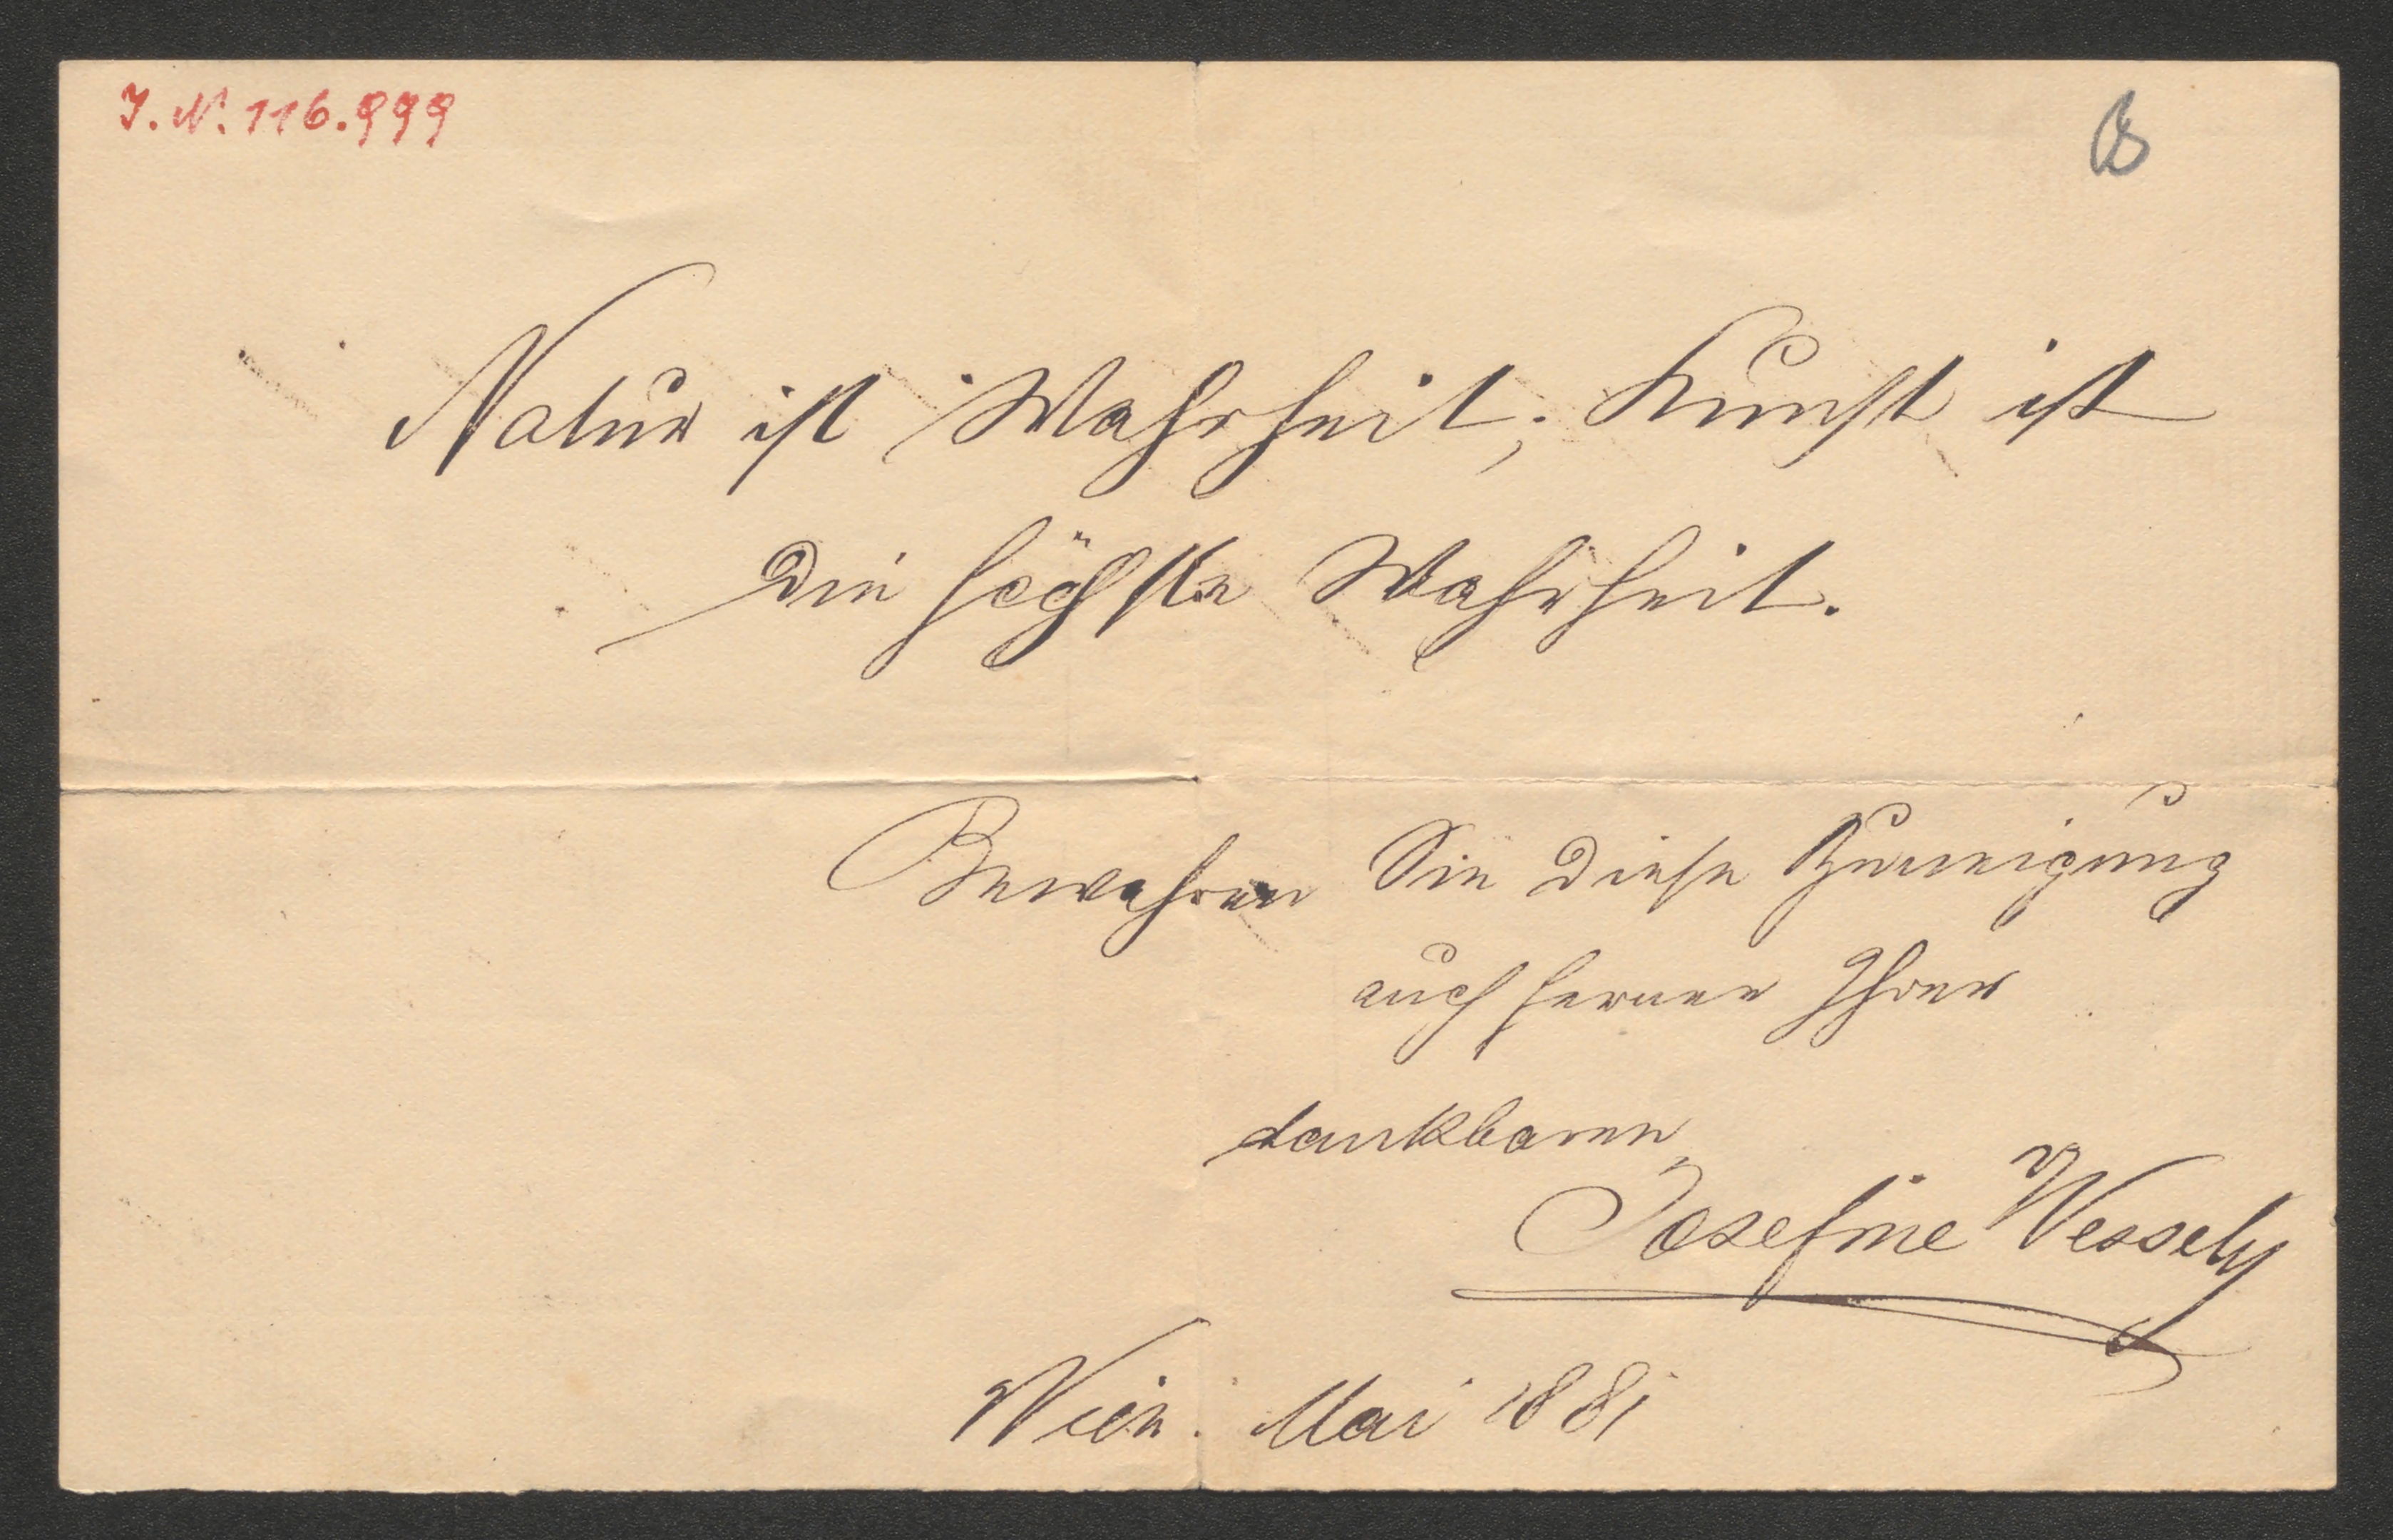 J. N. 116.999
B
Natur ist Wahrheit; Kunst ist
die höchste Wahrheit.
Bewahren Sie diese Zuneigung
auch ferner Ihrer
dankbaren
Josefine Wessely
Wien. Mai 1881